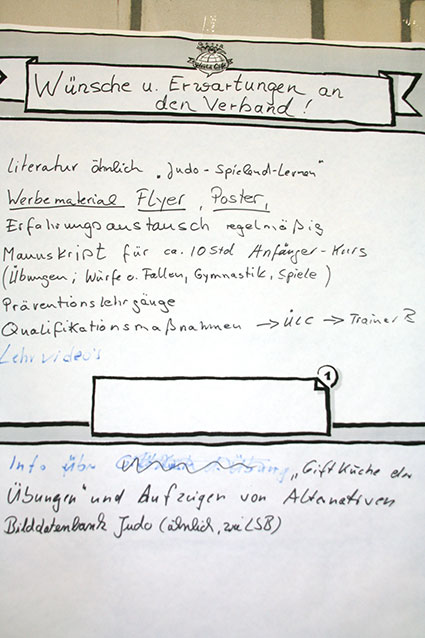 Wünsche u. Erwartungen an
den Verband!
Literatur ähnlich „Judo-spielend-Lernen"
Werbematerial Flyer, Poster,
Erfahrungsaustausch regelmäßig
Manuskript für ca. 10 Std Anfänger-Kurs
(Übungen; Würfe o. Fallen, Gymnastik, Spiele)
Präventionslehrgänge
Qualifikationsmaßnahmen → ÜLC → Trainer
Lehrvideo's
1
Info über „Giftküche der
Übungen" und Aufzeigen von Alternativen
Bilddatenbank Judo (ähnlich, wie LSB)